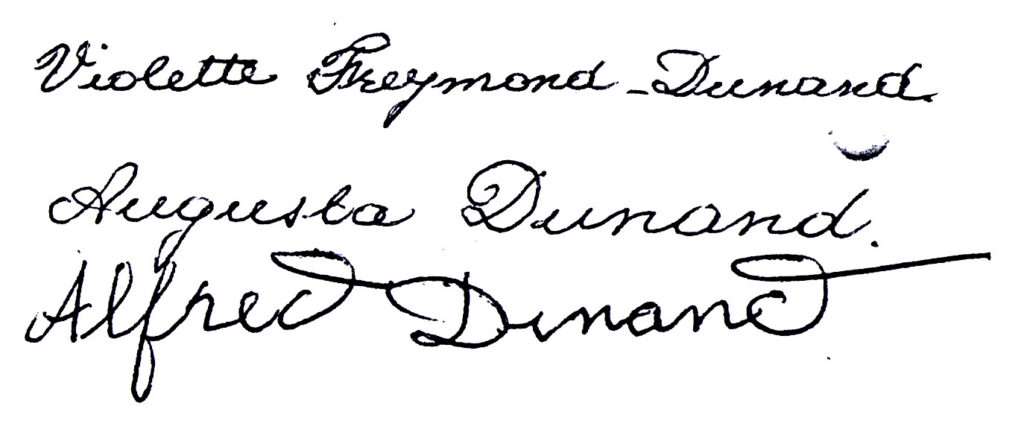 Violette Freymond-Dunand.
Augusta Dunand.
Alfred Dunand